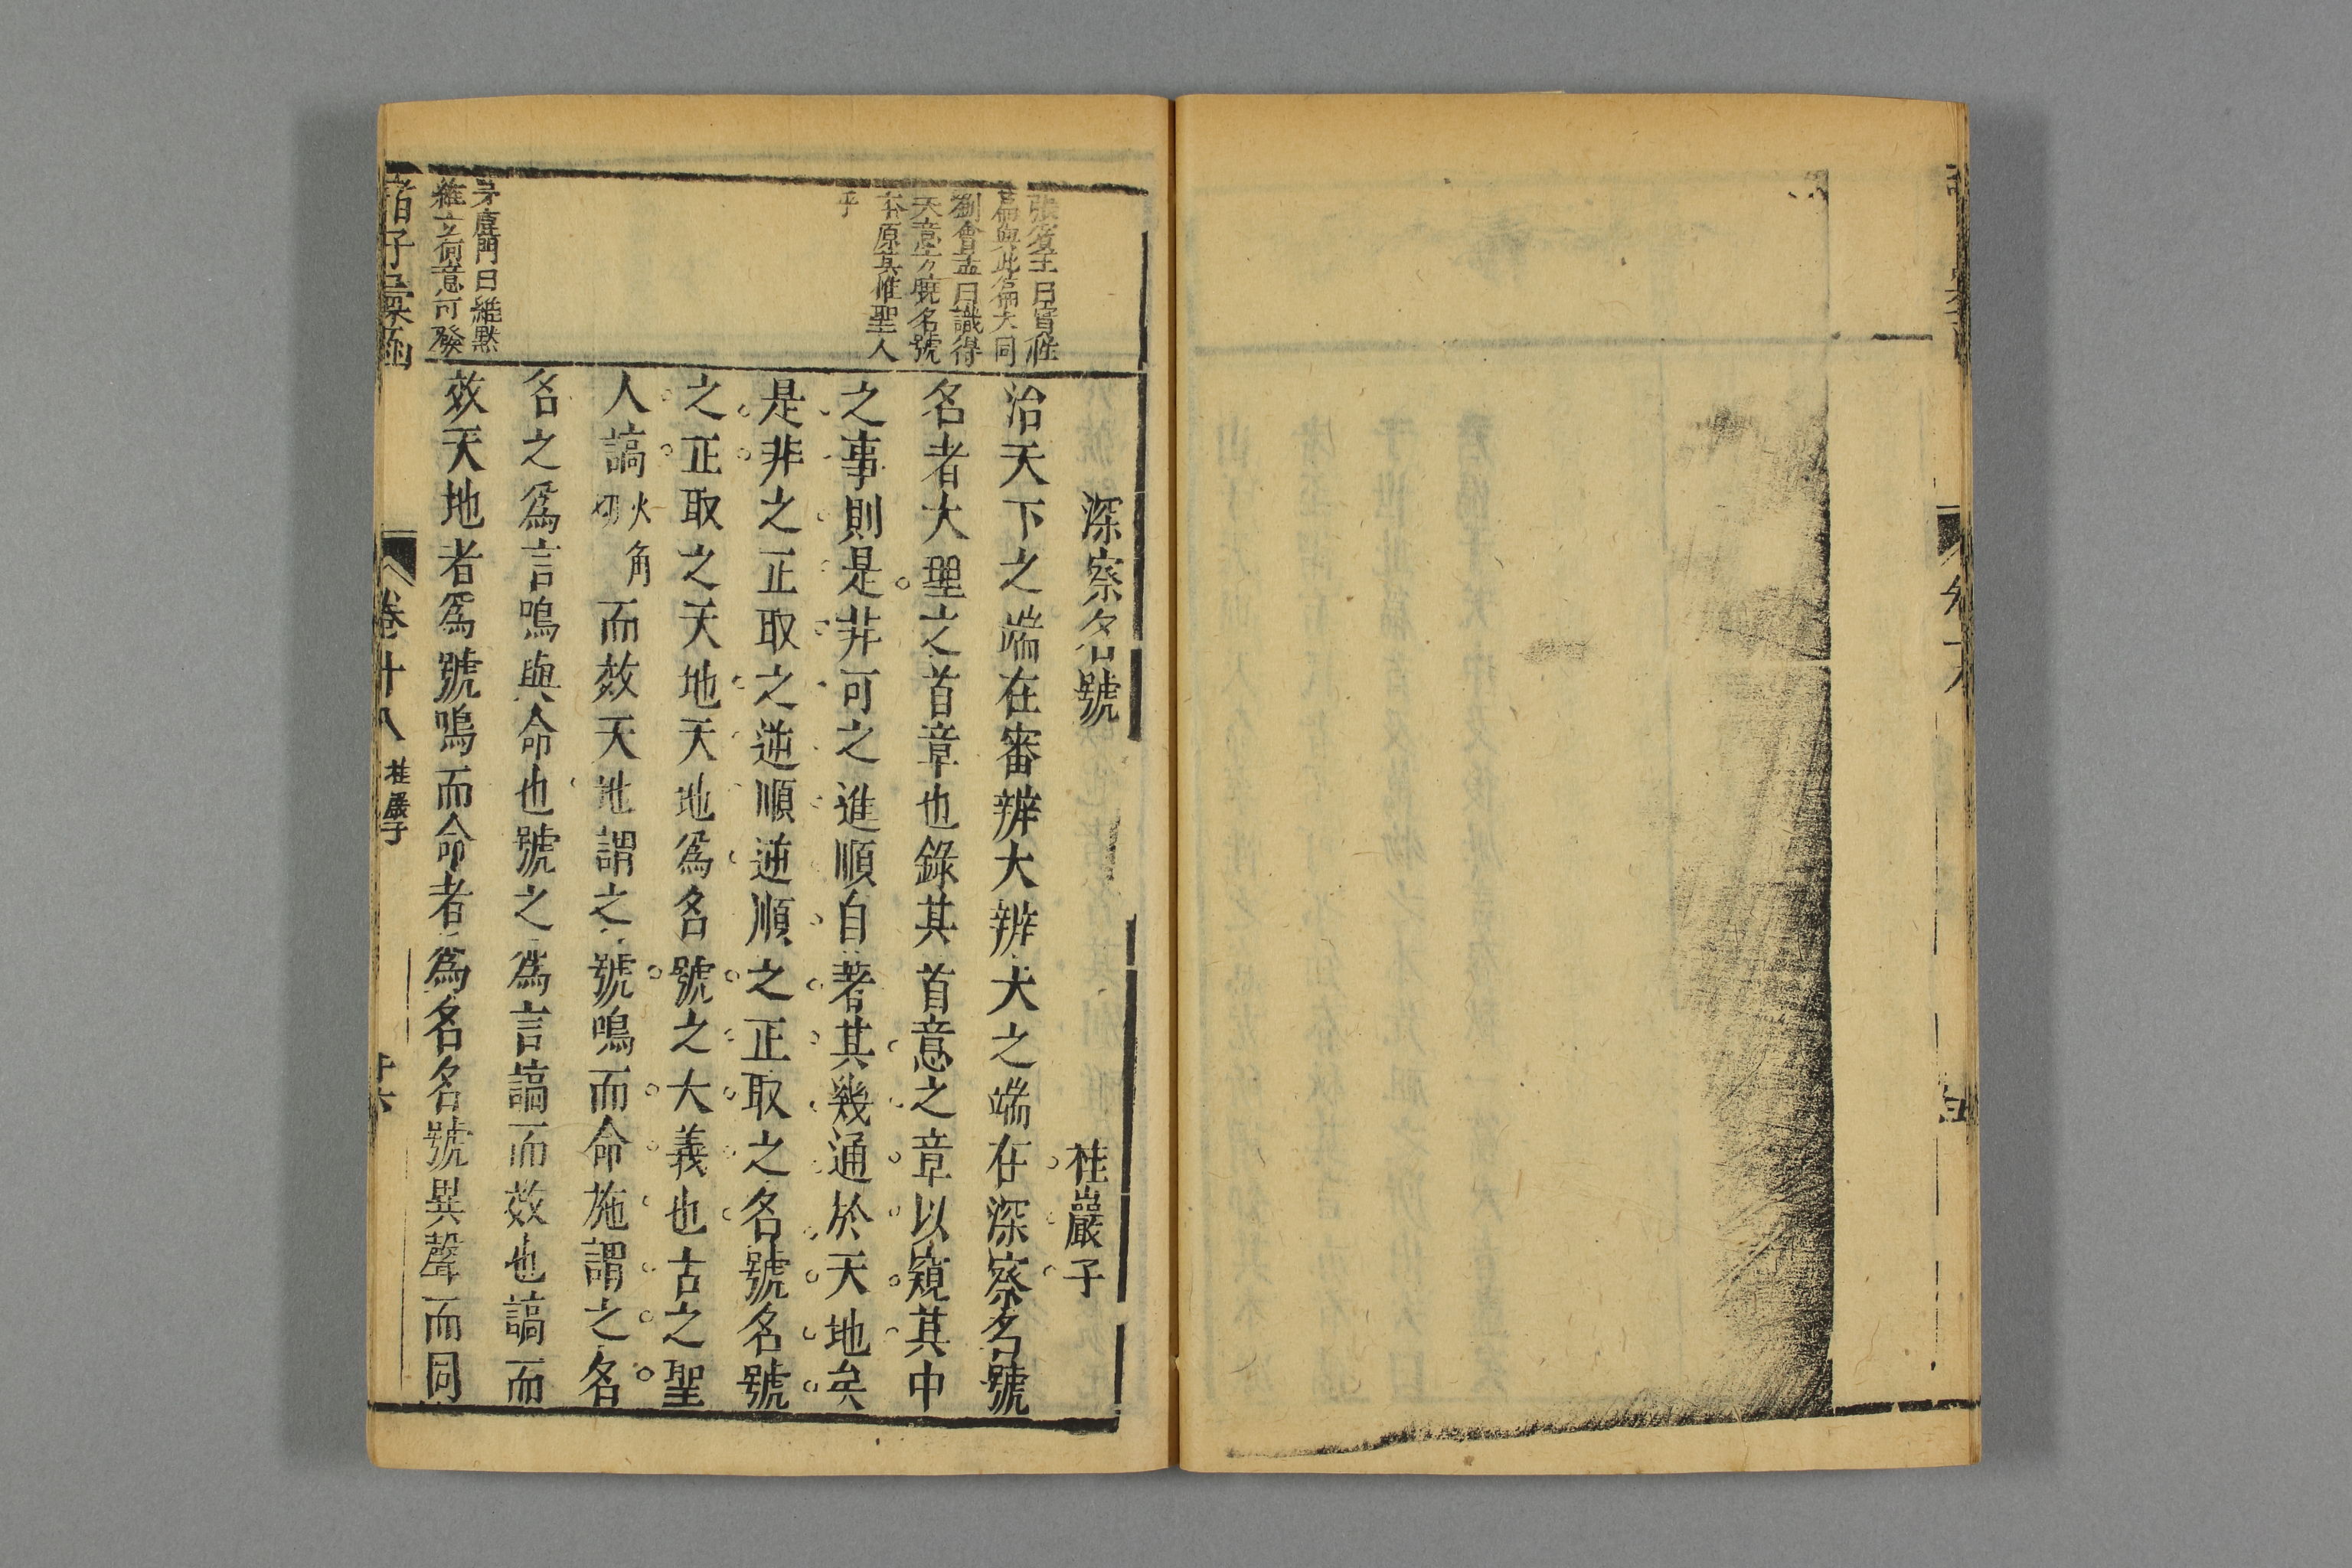 深察名號
桂巖子
治天下之端在審辨大辨大之端在深察名號
名者大聖之首章也錄其首意之章以窺其中
之事則是非可之進順自著其幾通於天地矣
是非之正取之逆順逆順之正取之名號名號
之正取之天地天地爲名號之大義也古之聖
人謞火角切而效天地謂之號鳴而命施謂之名
名之爲言鳴與命也號之爲言謞而效也謞而
效天地者爲號鳴而命者爲名名號異聲而同
張賓王曰實性
篇與此篇大同
劉會孟曰識得
天意方曉名號
本原其惟聖人
乎
茅鹿門曰維默
維立何意可發
諸子彙函
卷十八
桂巖子
廿六